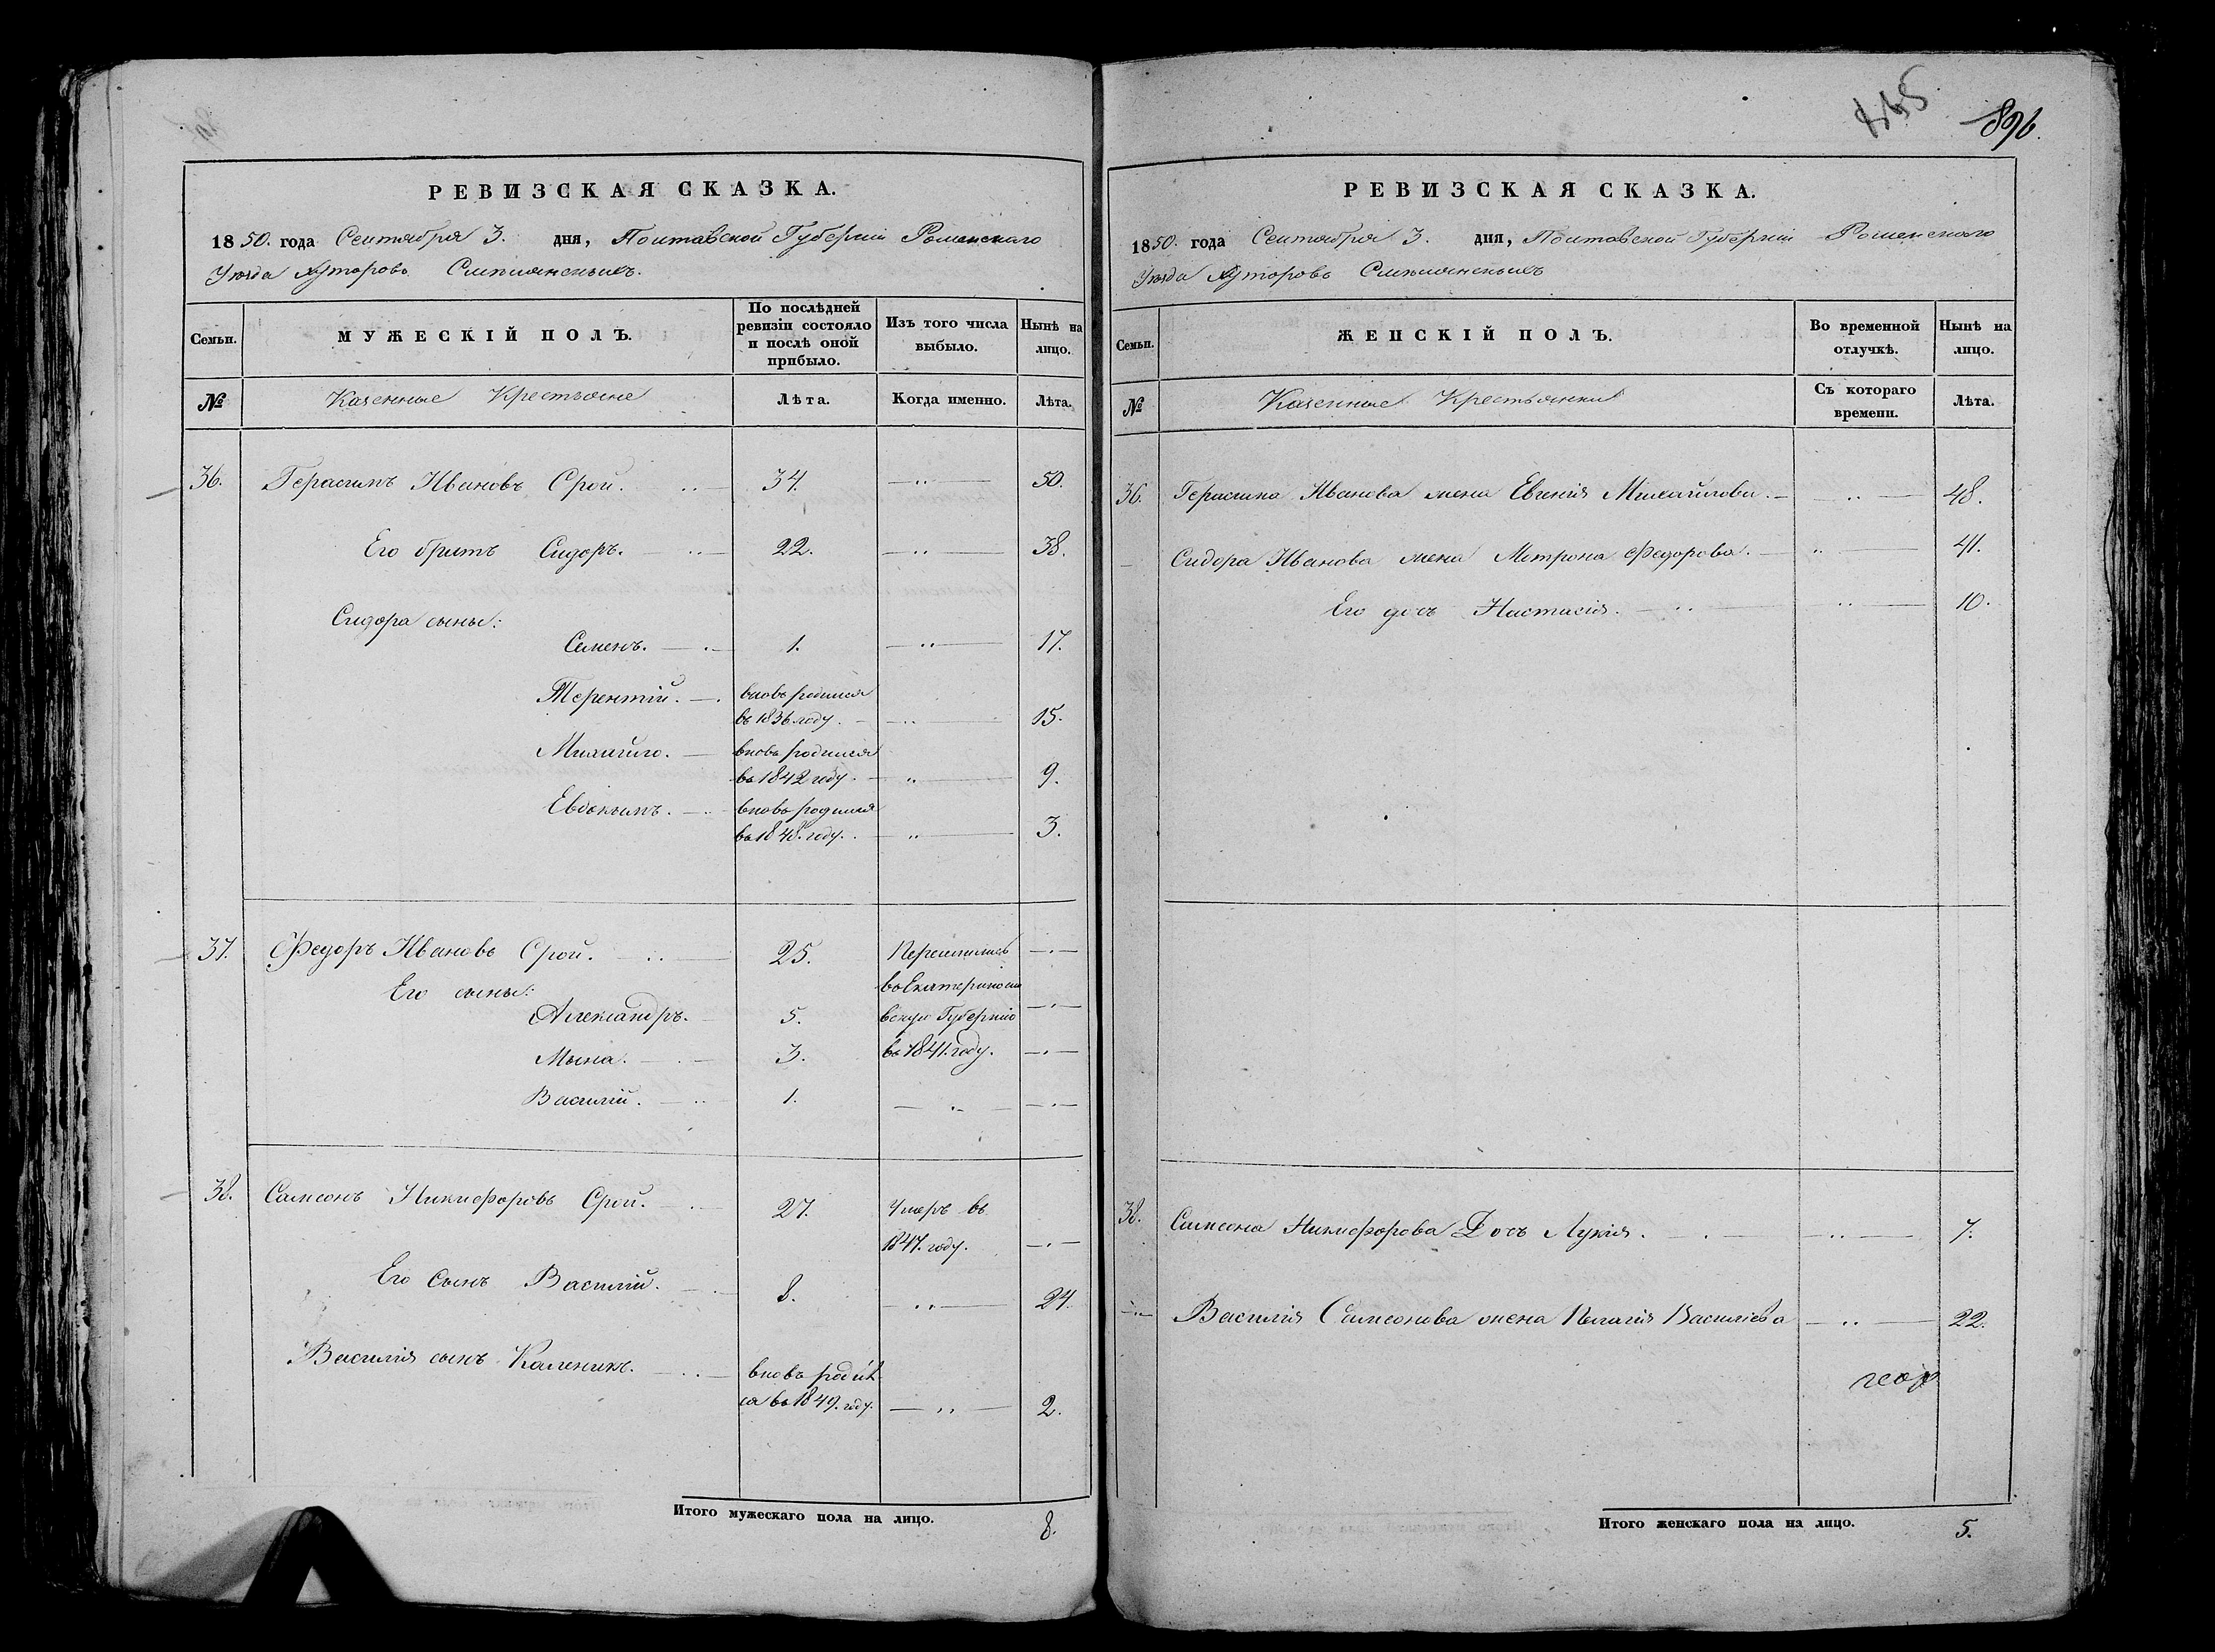 РЕВИЗСКАЯ СКАЗКА.
1850. года Сентября 3. дня, Полтавской Губернии Роменскаго
Уѣзда Хуторовъ
Семьи.
МУЖЕСКІЙ ПОЛЪ.
По послѣдней ревизіи состояло и послѣ оной прибыло.
Изъ того числа выбыло.
Нынѣ на лицо.
№
Казенные Крестьяне
Лѣта.
Когда именно.
Лѣта.
36. Герасимъ Ивановъ Срой. 34. 50.
Его братъ Сидоръ. 22. 38.
Сидора сыны:
Семенъ. 1. 17.
Терентій. вновь родился
въ 1836 году. 15.
Михайло. вновь родился
въ 1842 году. 9.
Евдокимъ. вновь родился
въ 1848. году. 3.
37. Федоръ Ивановъ Срой. 25. Переселились
Его сыны: въ Екатериносла
Александръ. 5. вскую Губернію
Мына. 3. въ 1841. году.
Василій. 1.
38. Самсонъ Никифоровъ Срой. 27. Умеръ въ
1847. году.
Его сынъ Василій. 8. 24.
Василія сынъ Каленикъ. вновь родил
ся въ 1849. году. 2.
Итого мужескаго пола на лицо. 8.
896.
РЕВИЗСКАЯ СКАЗКА.
1850. года Сентября 3. дня, Полтавской Губернии Роменскаго
Уѣзда Хуторовъ
Семьи.
ЖЕНСКІЙ ПОЛЪ.
Во временной отлучкѣ.
Нынѣ на лицо.
№
Казенные Крестьянки
Съ котораго времени.
Лѣта.
36. Герасима Иванова жена Евгенія Михайлова. 48.
Сидора Иванова жена Мотрона Федорова. 41.
Его дочь Настасія. 10.
38. Самсона Никифорова Дочь Лукія. 7.
Василія Самсонова жена Пелагія Василіева 22.
Итого женскаго пола на лицо. 5.